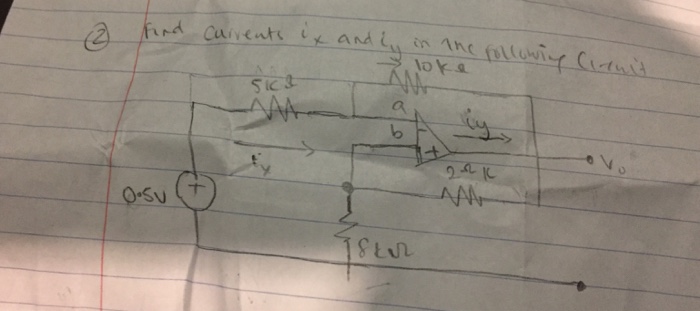 ② Find currents ix and iy in the following Circuit
10kΩ
5kΩ
a
iy
b
-
+
ix
Vo
2Ω K
0.5V
+
8kΩ